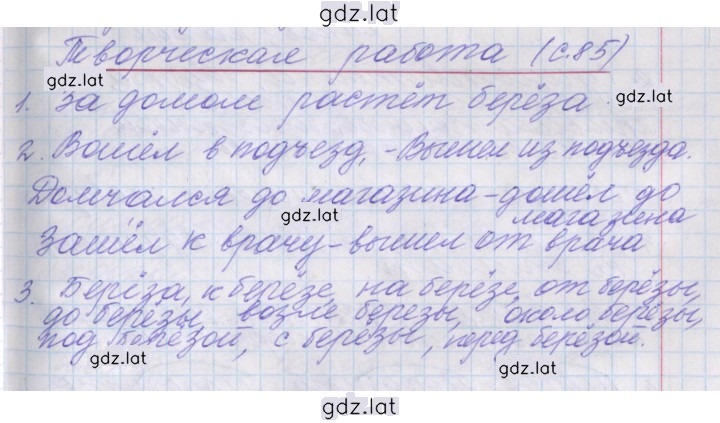 gdz.lat
Творческая работа (с.85)
gdz.lat
1. За домом растёт берёза
gdz.lat
2. Вошёл в подъезд, - Вышел из подъезда.
Домчался до магазина - дошёл до
магазина
gdz.lat
Зашёл к врачу - вышел от врача
3. Берёза, к берёзе, на берёзе, от берёзы,
до берёзы, возле берёзы, около берёзы,
под берёзой, с берёзы, перед берёзой.
gdz.lat
gdz.lat
gdz.lat